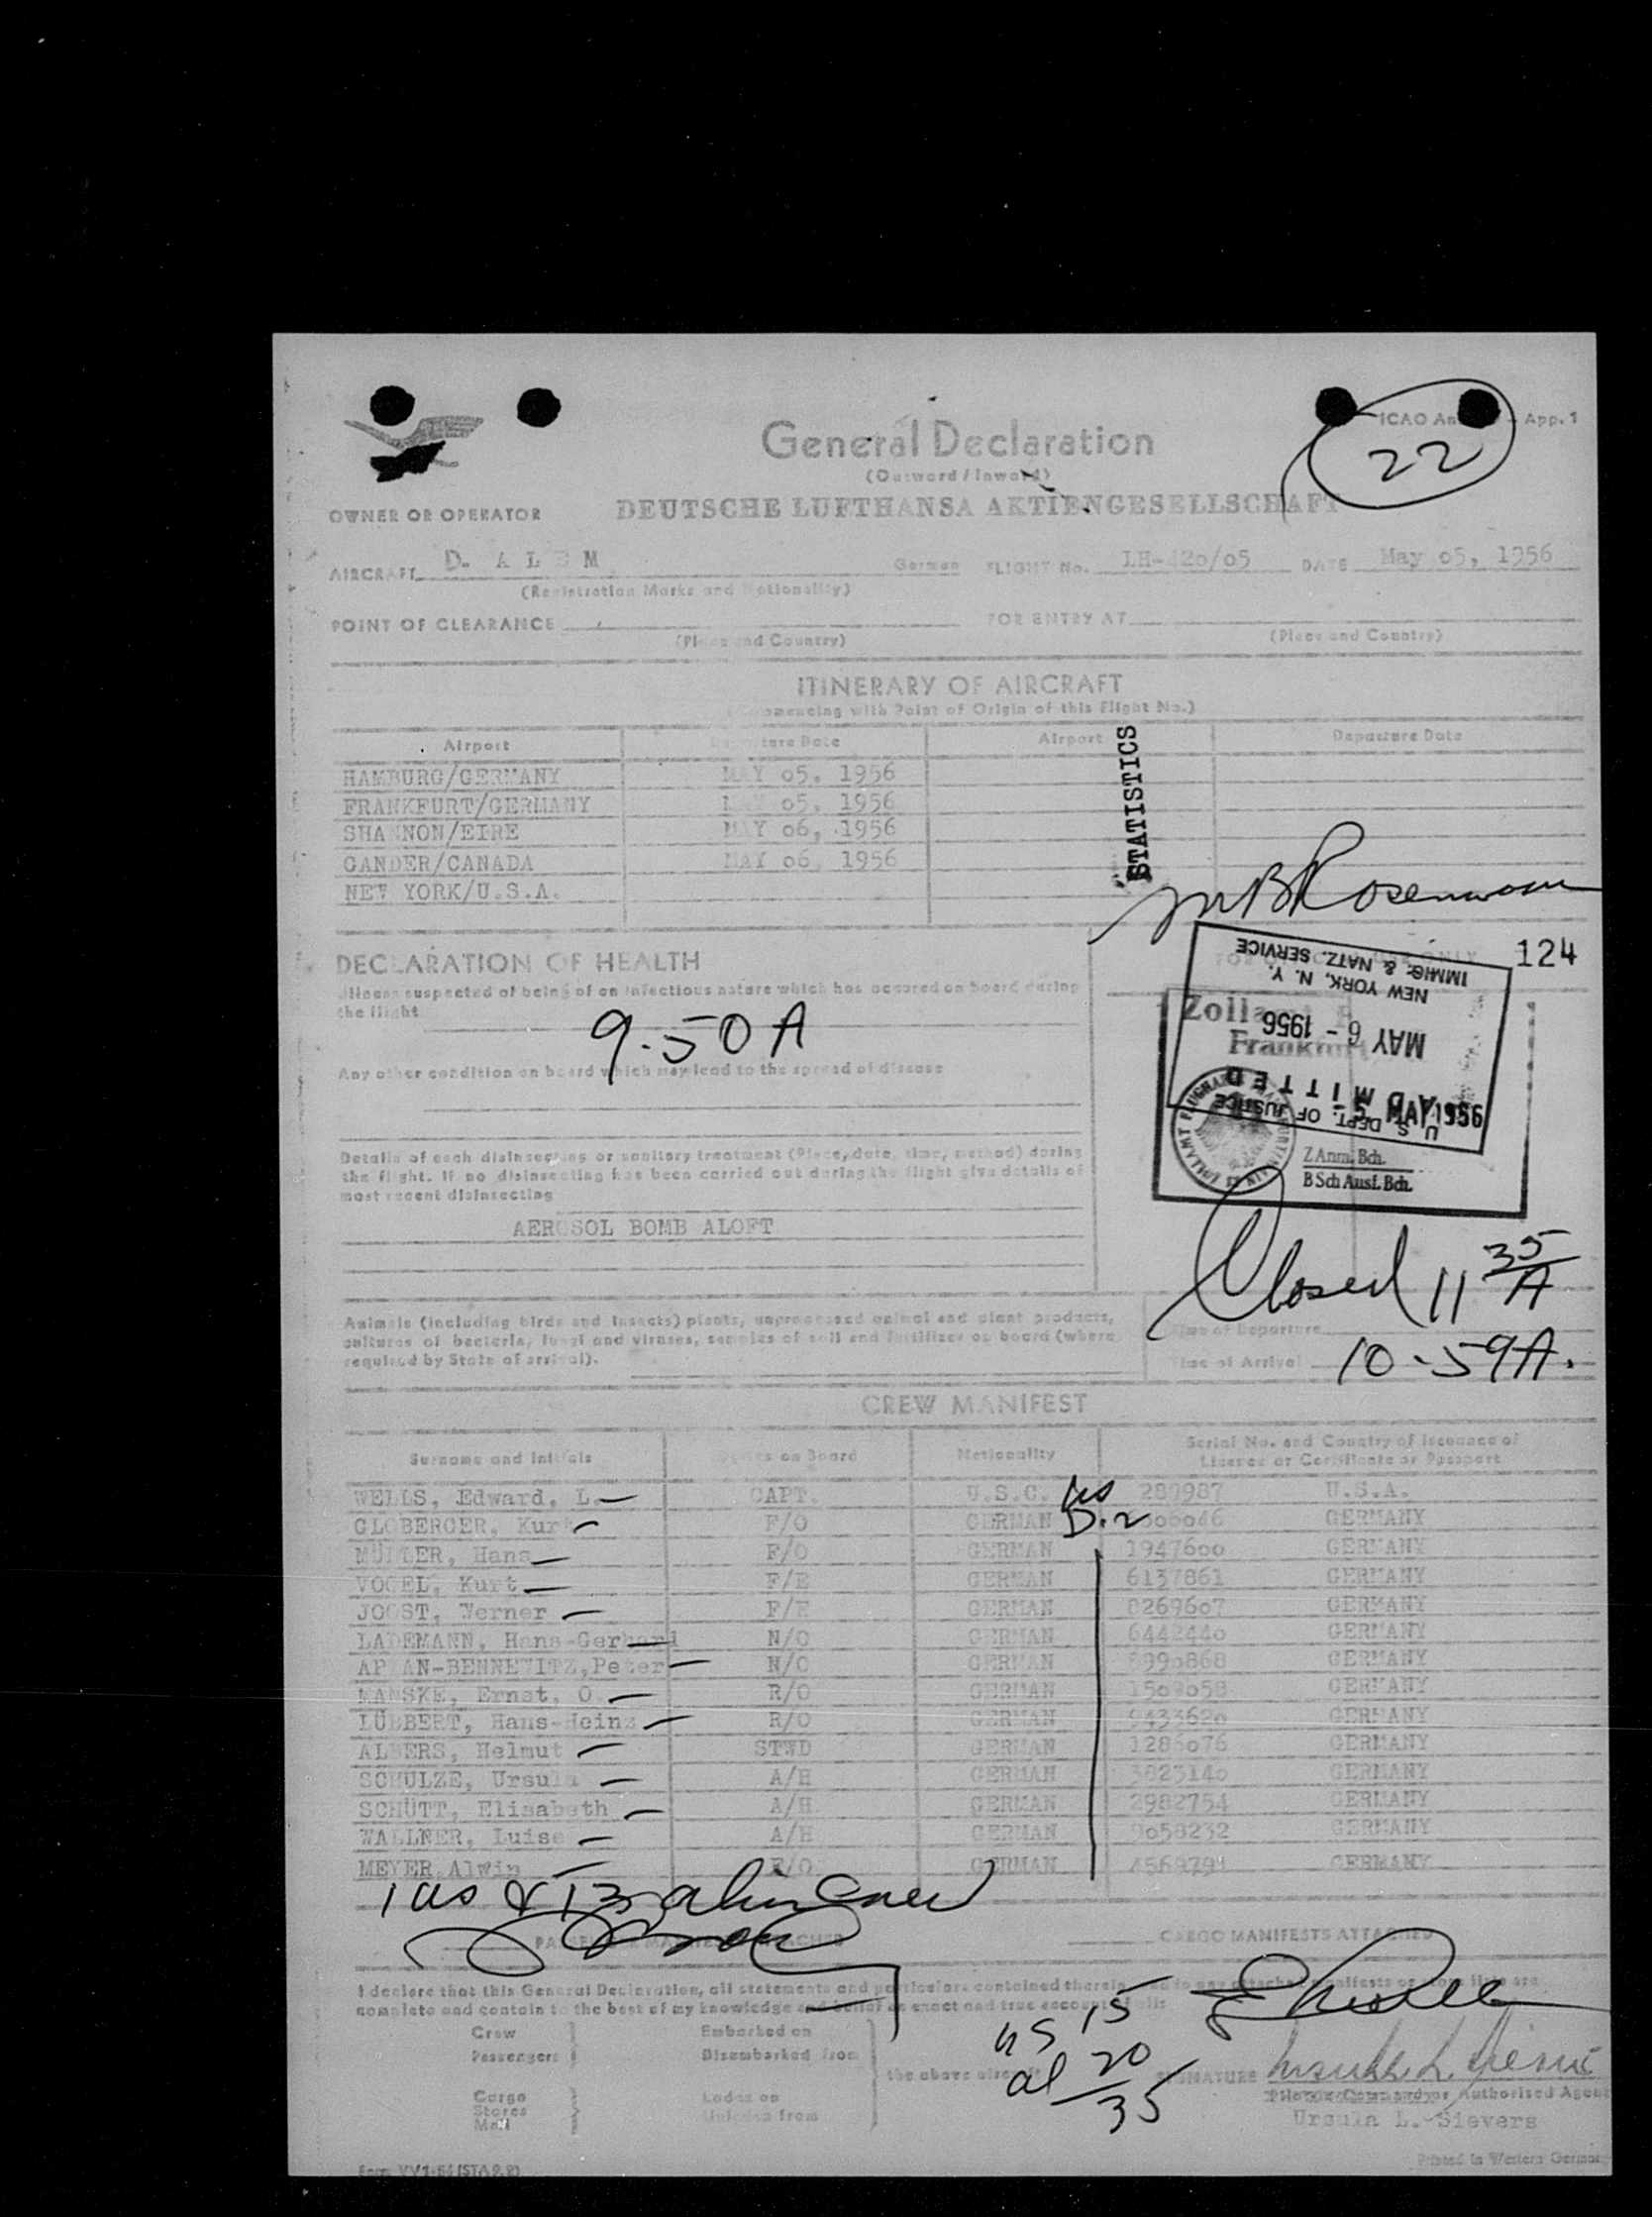 General Declaration
(Outward / Inward)
ICAO App. 1
22
OWNER OR OPERATOR DEUTSCHE LUFTHANSA AKTIENGESELLSCHAFT
AIRCRAFT D. A L E M German FLIGHT No. LH-420/05 DATE May 05, 1956
(Registration Marks and Nationality)
POINT OF CLEARANCE FOR ENTRY AT
(Place and Country) (Place and Country)
ITINERARY OF AIRCRAFT
(Commencing with Point of Origin of this Flight No.)
Airport Departure Date Airport Departure Date
HAMBURG/GERMANY MAY 05. 1956
FRANKFURT/GERMANY MAY 05. 1956
SHANNON/EIRE MAY 06, 1956
GANDER/CANADA MAY 06. 1956
NEW YORK/U.S.A.
STATISTICS
124
DECLARATION OF HEALTH
Illness suspected of being of an infectious nature which has occured on board during
the flight
9.50 A
Any other condition on board which may lead to the spread of disease
Details of each disinsecting or sanitary treatment (Place, date, time, method) during
the flight. If no disinsecting has been carried out during the flight give details of
most recent disinsecting
AEROSOL BOMB ALOFT
U. S. DEPT. OF JUSTICE
ADMITTED
MAY 6 - 1956
NEW YORK, N. Y.
IMMIG. & NATZ. SERVICE
Frankfurt
-5. MAY 1956
Z Anm. Bch.
B Sch Ausf. Bch.
Closed 11 35/A
Animals (including birds and insects) plants, unprocessed animal and plant products,
cultures of bacteria, fungi and viruses, samples of soil and fertilizer on board (where
required by State of arrival).
Time of Departure
Time of Arrival 10-59A.
CREW MANIFEST
Surname and Initials Duties on Board Nationality Serial No. and Country of Issuance of
Licence or Certificate or Passport
WELLS, Edward, L. CAPT. U.S.C. us 280987 U.S.A.
GLOBERGER, Kurt F/O GERMAN D.2 GERMANY
MÜLLER, Hans F/O GERMAN 1947600 GERMANY
VOGEL, Kurt F/E GERMAN 6137861 GERMANY
JOOST, Werner F/E GERMAN 0269607 GERMANY
LADEMANN, Hans-Gerhard N/O GERMAN 6442440 GERMANY
-BENNEWITZ, Peter N/O GERMAN GERMANY
MANSKE, Ernst, O R/O GERMAN 1509058 GERMANY
LÜBBERT, Hans-Heinz R/O GERMAN 9433620 GERMANY
ALBERS, Helmut STWD GERMAN 1286076 GERMANY
SCHULZE, Ursula A/H GERMAN 3823140 GERMANY
SCHÜTT, Elisabeth A/H GERMAN 2982754 GERMANY
WALLNER, Luise A/H GERMAN 9058232 GERMANY
MEYER, Alwin F/O GERMAN GERMANY
1 us & 13 alien crew
PASSENGER MANIFESTS ATTACHED CARGO MANIFESTS ATTACHED
I declare that this General Declaration, all statements and particulars contained therein
complete and contain to the best of my knowledge and belief an exact and true account of all:
Crew Embarked on
Passengers Disembarked from
the above aircraft
Cargo Laden on
Stores Unladen from
Mail
us 15
al 20
35
SIGNATURE
Pilot in Command or Authorised Agent
Ursula L. Sievers
Printed in Western Germany